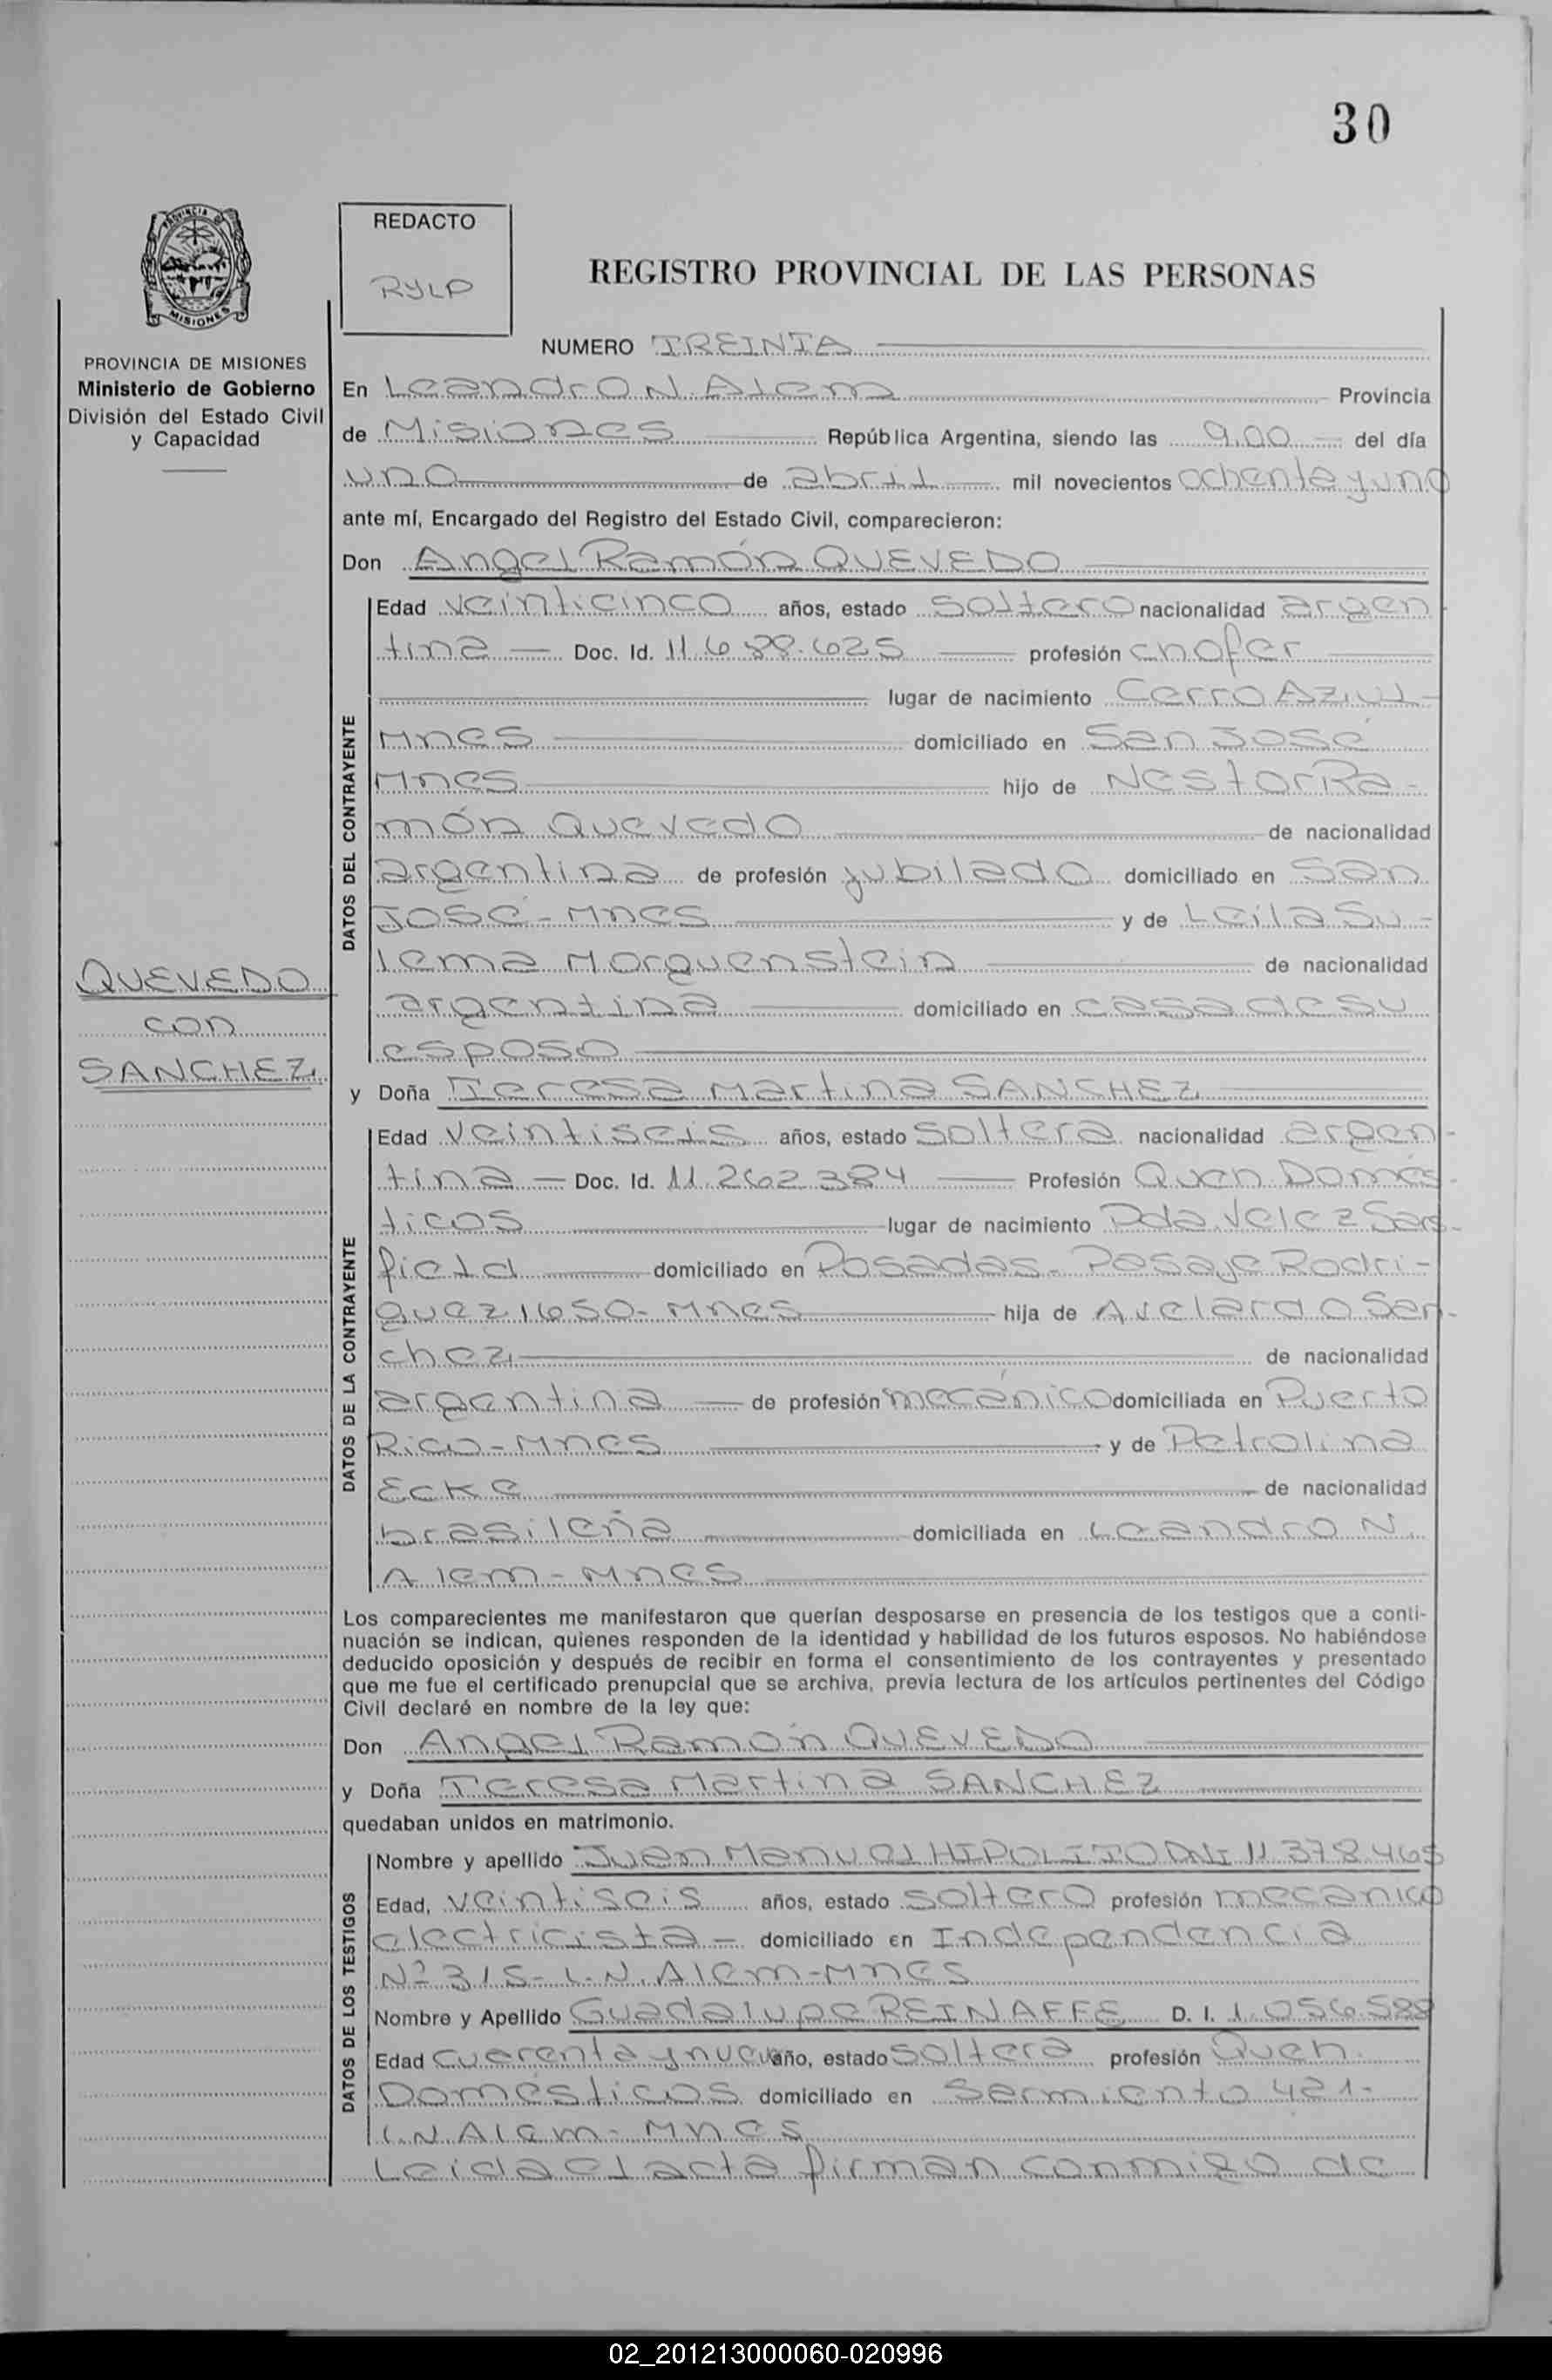 30
PROVINCIA DE
MISIONES
REDACTO
RYLP
REGISTRO PROVINCIAL DE LAS PERSONAS
PROVINCIA DE MISIONES
Ministerio de Gobierno
División del Estado Civil
y Capacidad
NUMERO TREINTA
En Leandro N. Alem Provincia
de Misiones República Argentina, siendo las 9.00 del día
uno de abril mil novecientos ochenta y uno
ante mí, Encargado del Registro del Estado Civil, comparecieron:
Don Angel Ramón QUEVEDO
Edad veinticinco años, estado soltero nacionalidad argen
tina Doc. Id. 11.688.625 profesión chofer
lugar de nacimiento Cerro Azul-
Mnes domiciliado en San José
Mnes hijo de Nestor Ra-
món Quevedo de nacionalidad
argentina de profesión jubilado domiciliado en San
José - Mnes y de Leila Su-
lema Morguenstein de nacionalidad
argentina domiciliado en casa de su
esposo
DATOS DEL CONTRAYENTE
QUEVEDO
con
SANCHEZ
y Doña Teresa Martina SANCHEZ
Edad veintiseis años, estado soltera nacionalidad argen-
tina Doc. Id. 11.262.384 Profesión Queh Domés-
ticos lugar de nacimiento Pda. Velez Sars-
field domiciliado en Posadas- Pasaje Rodri-
guez 1650-Mnes hija de Avelardo San-
chez de nacionalidad
argentina de profesión mecánico domiciliada en Puerto
Rico-Mnes y de Petrolina
Ecke de nacionalidad
brasileña domiciliada en Leandro N.
Alem-Mnes
DATOS DE LA CONTRAYENTE
Los comparecientes me manifestaron que querían desposarse en presencia de los testigos que a conti-
nuación se indican, quienes responden de la identidad y habilidad de los futuros esposos. No habiéndose
deducido oposición y después de recibir en forma el consentimiento de los contrayentes y presentado
que me fue el certificado prenupcial que se archiva, previa lectura de los artículos pertinentes del Código
Civil declaré en nombre de la ley que:
Don Angel Ramón QUEVEDO
y Doña Teresa Martina SANCHEZ
quedaban unidos en matrimonio.
Nombre y apellido Juan Manuel HIPOLITO DNI 11.378.465
Edad, veintiseis años, estado soltero profesión mecánico
electricista - domiciliado en Independencia
Nº 315- L.N. Alem-Mnes
Nombre y Apellido Guadalupe REINAFFE D. I. 1.056.588
Edad cuarenta y nueve año, estado soltera profesión Queh
Domésticos domiciliado en Sarmiento 421-
L.N. Alem- Mnes
DATOS DE LOS TESTIGOS
Leida el acta firman conmigo de
02_201213000060-020996